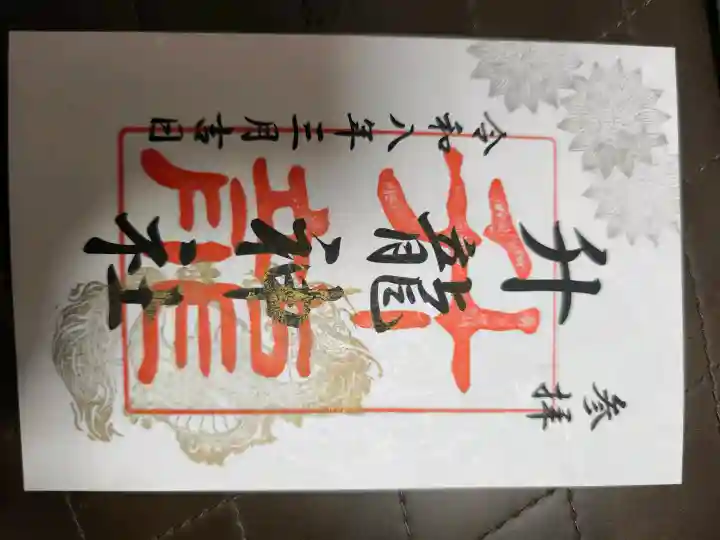 参拝
升龍神社
令和八年三月吉日
升龍